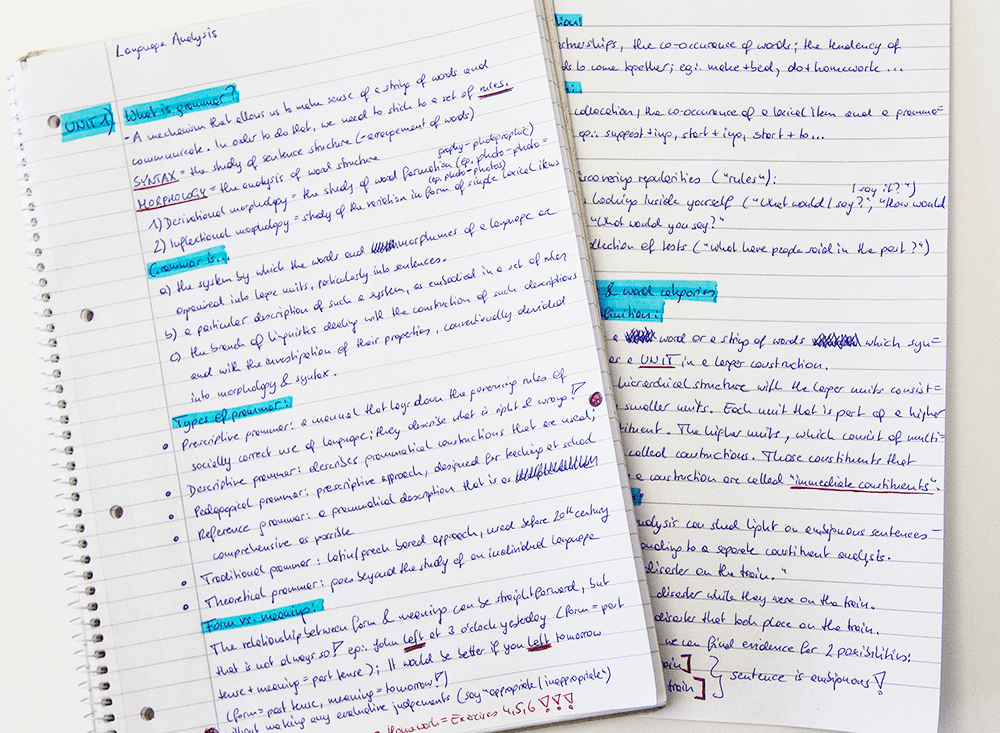 Language Analysis
UNIT 1)
What is grammar?
- A mechanism that allows us to make sense of a string of words and
communicate. In order to do that, we need to stick to a set of rules.
SYNTAX = the study of sentence structure (-arrangement of words)
MORPHOLOGY = the analysis of word structure
graphy - photographic)
1) Derivational morphology = the study of word formation (eg. photo - photo =
(eg. photo - photos)
2) Inflectional morphology = study of the variation in form of single lexical items
Grammar is...
a) the system by which the words and morphemes of a language are
organized into large units, particularly into sentences.
b) a particular description of such a system, as embodied in a set of rules
c) the branch of linguistics dealing with the construction of such descriptions
and with the investigation of their properties, conventionally divided
into morphology & syntax.
Types of grammar:
Prescriptive grammar: a manual that lays down the governing rules of
socially correct use of language; they describe what is right & wrong!
Descriptive grammar: describes grammatical constructions that are used;
Pedagogical grammar: prescriptive approach, designed for teaching at school
Reference grammar: a grammatical description that is as
comprehensive as possible
Traditional grammar: latin/greek based approach, used before 20th century
Theoretical grammar: goes beyond the study of an individual language
Form vs. meaning:
The relationship between form & meaning can be straightforward, but
that is not always so! eg.: John left at 3 o'clock yesterday (form = past
tense + meaning = past tense); It would be better if you left tomorrow
(form = past tense, meaning = tomorrow!)
without making any evaluative judgements (say "appropriate / inappropriate")
Homework = Exercises 4,5,6 !!!
tion:
rtnerships, the co-occurance of words; the tendency of
ds to come together; eg.: make + bed, do + homework ...
n:
collocation, the co-occurance of a lexical item and a gramma=
eg.: suggest + ing, start + ing, start + to...
scovering regularities ("rules"):
I say it?")
Looking inside yourself ("What would I say?", "How would
"What would you say?"
ollection of texts ("what have people said in the past?")
& word categories
finition:
a word or a string of words which syn=
as a UNIT in a larger construction.
hierarchical structure with the larger units consist=
smaller units. Each unit that is part of a higher
tituent. The higher units, which consist of multi=
called constructions. Those constituents that
a construction are called "immediate constituents".
nalysis can shed light on ambiguous sentences -
onding to a separate constituent analysis.
disaster on the train."
disaster while they were on the train.
disaster that took place on the train.
we can find evidence for 2 possibilities:
train]
train]
sentence is ambiguous!